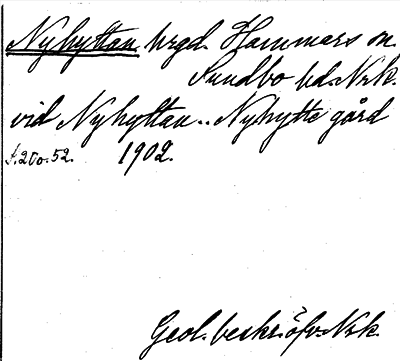 Nyhyttan hrgd. Hammars sn.
Sundbo hd. Nrk.
vid Nyhyttan.. Nyhytte gård
S. 200. 52. 1902.
Geol. beskr. öfv. Nrk.